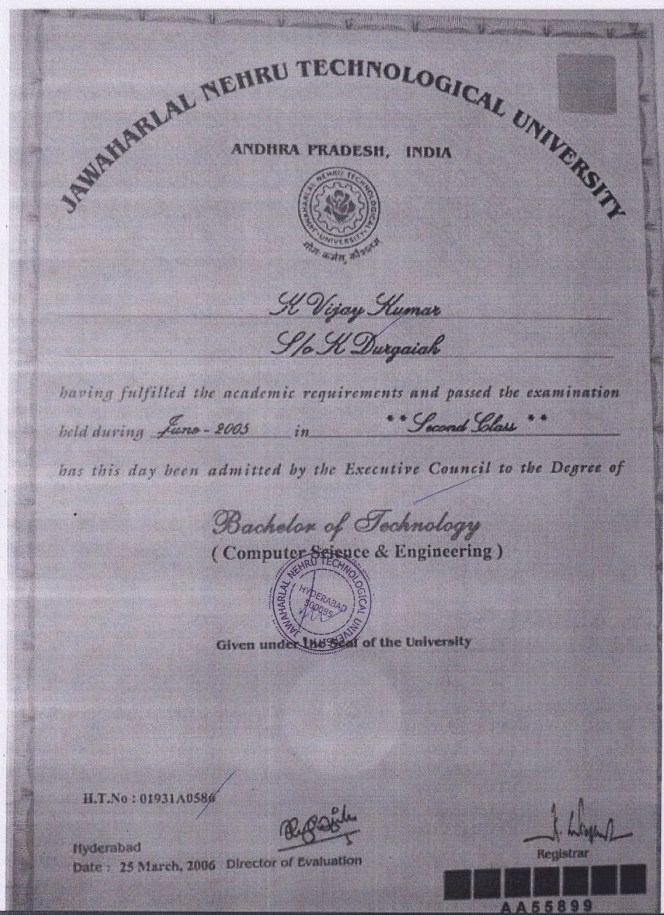 JAWAHARLAL NEHRU TECHNOLOGICAL UNIVERSITY
ANDHRA PRADESH, INDIA
JAWAHARLAL NEHRU TECHNOLOGICAL
UNIVERSITY
योगः कर्मसु कौशलम्
K Vijay Kumar
S/o K Durgaiah
having fulfilled the academic requirements and passed the examination
held during June - 2005 in ** Second Class **
has this day been admitted by the Executive Council to the Degree of
Bachelor of Technology
( Computer Science & Engineering )
JAWAHARLAL NEHRU TECHNOLOGICAL UNIVERSITY
HYDERABAD
500085
Given under the Seal of the University
H.T.No : 01931A0586
Hyderabad
Date : 25 March, 2006 Director of Evaluation
Registrar
AA55899